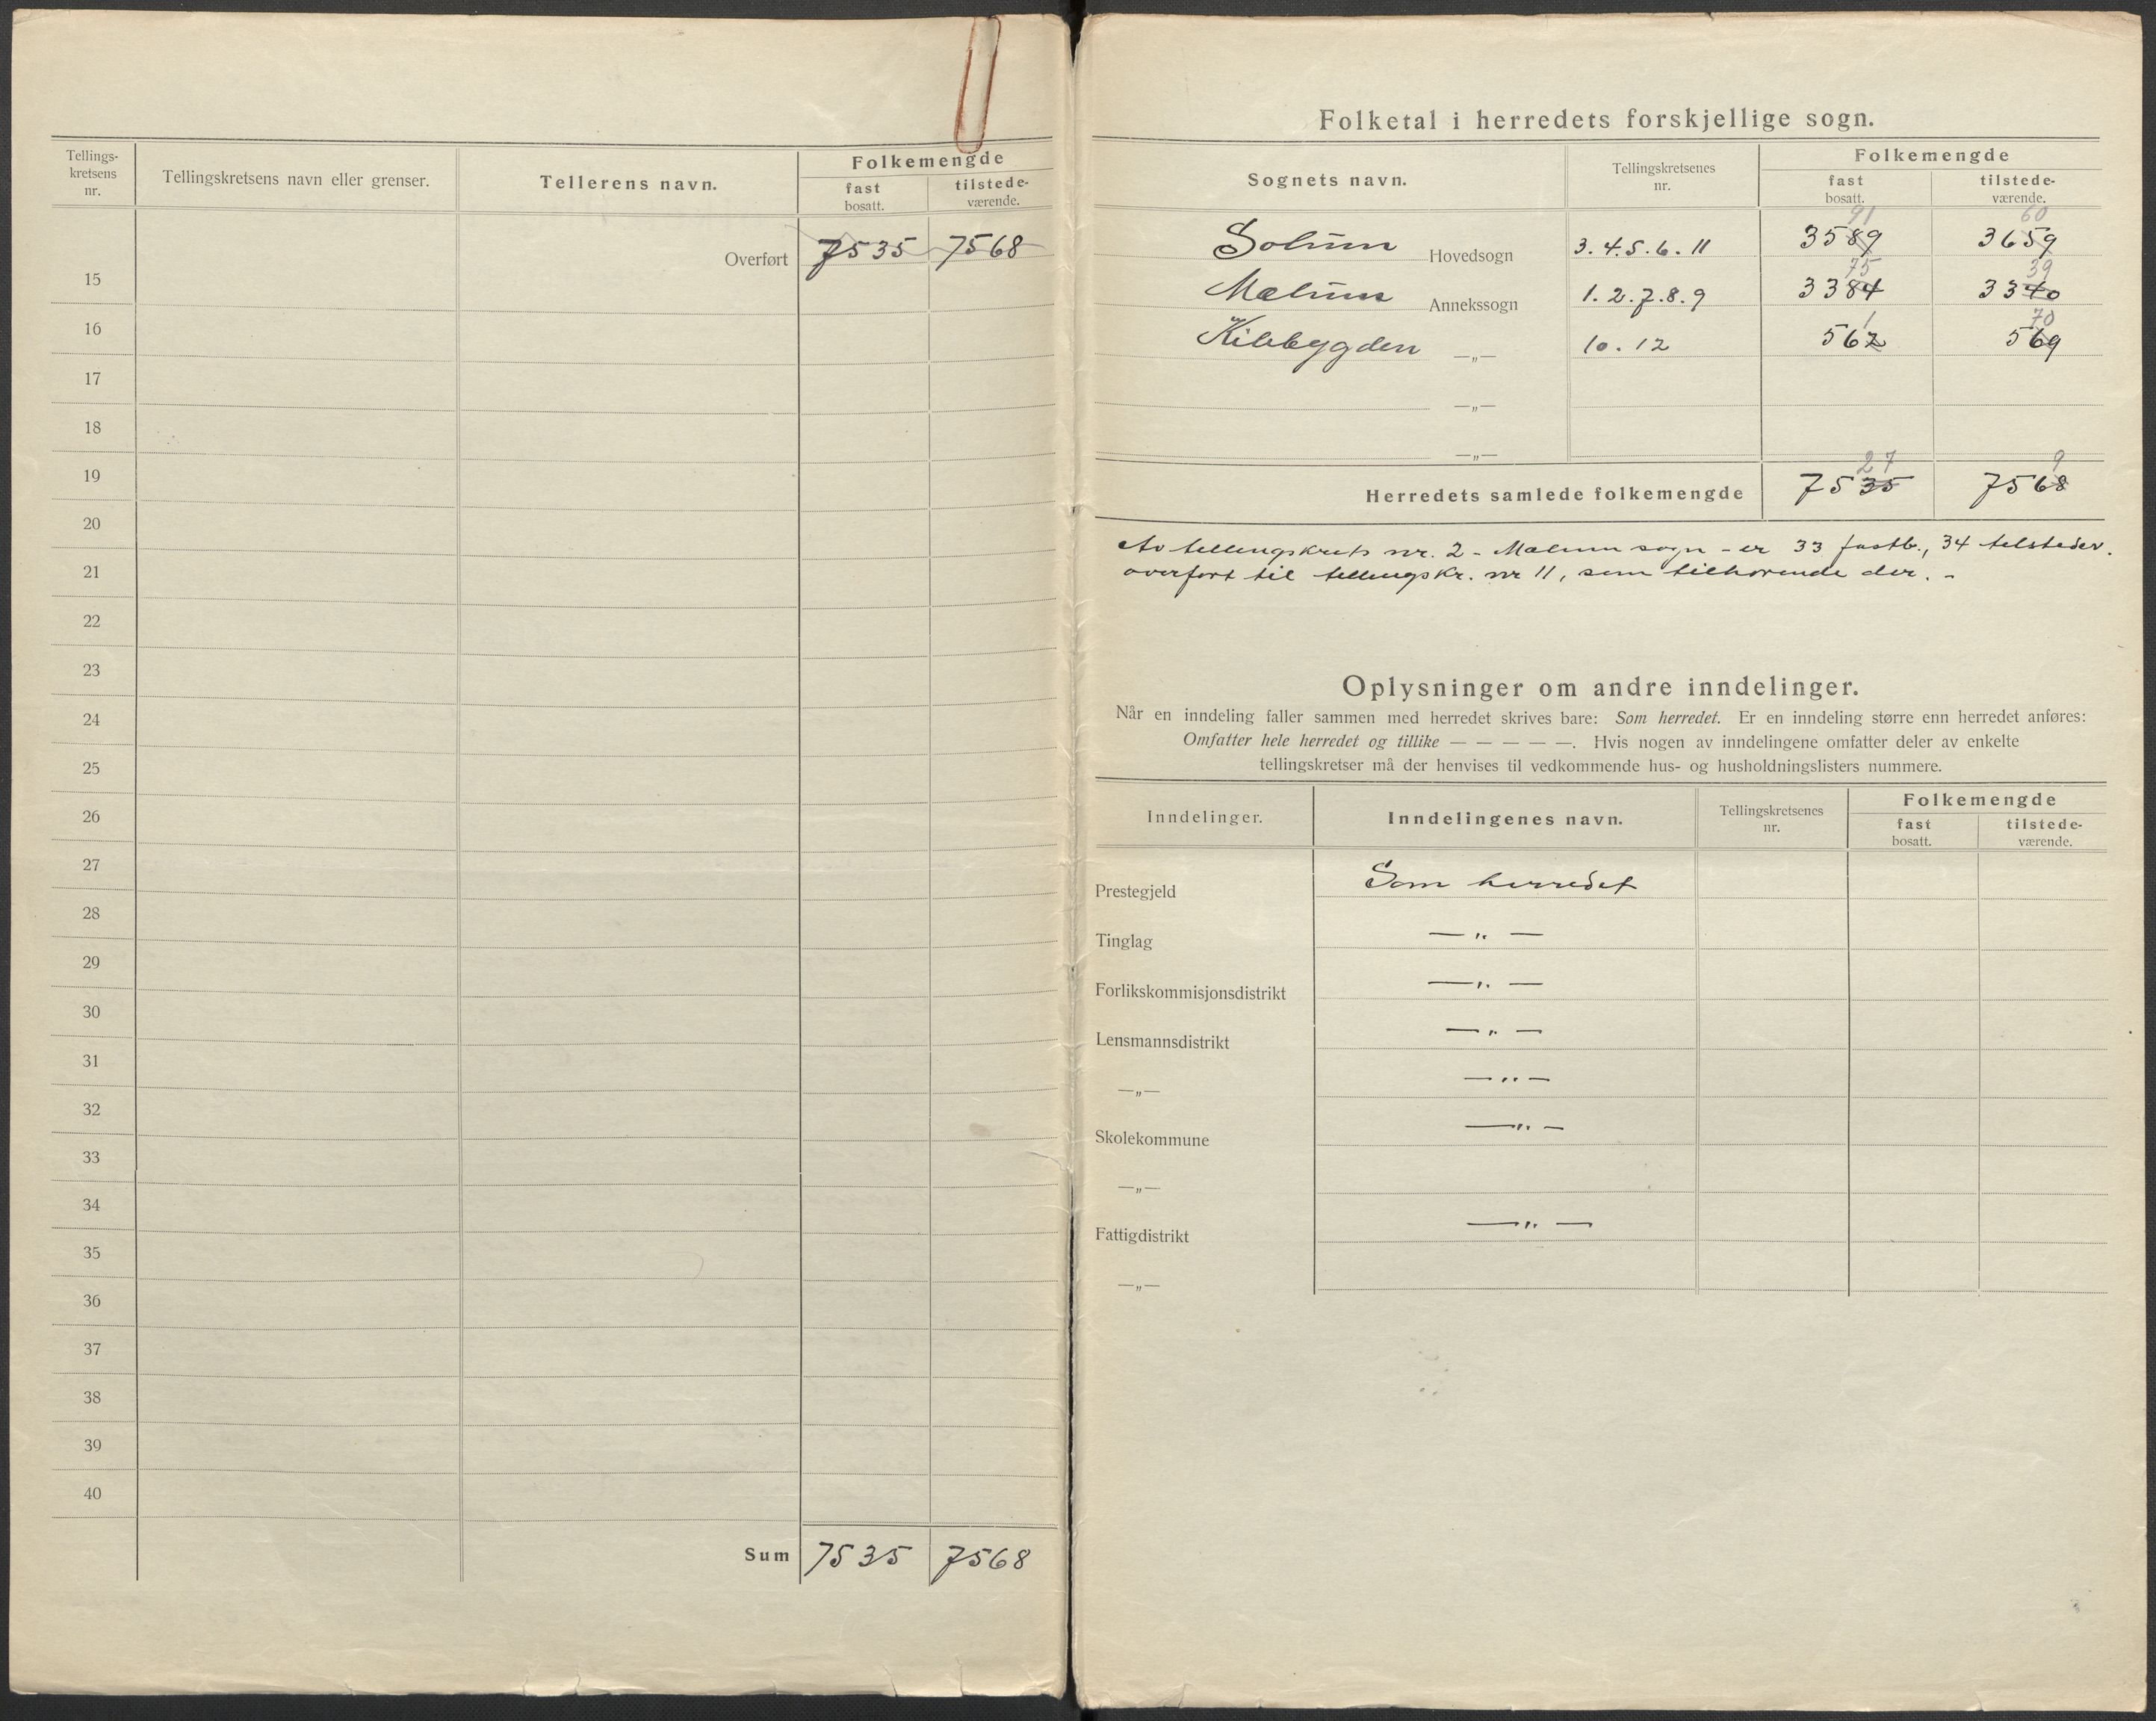 Tellings-
kretsens
nr.
Tellingskretsens navn eller grenser.
Tellerens navn.
Folkemengde
fast
bosatt.
tilstede-
værende.
Overført 7535 7568
15
16
17
18
19
20
21
22
23
24
25
26
27
28
29
30
31
32
33
34
35
36
37
38
39
40
Sum 7535 7568
Folketal i herredets forskjellige sogn.
Sognets navn.
Tellingskretsenes
nr.
Folkemengde
fast
bosatt.
tilstede-
værende.
91 60
Solum Hovedsogn 3. 4. 5. 6. 11 3589 3659
75 39
Mælum Annekssogn 1. 2. 7. 8. 9 3384 3340
1 70
Kilebygden —„— 10. 12 562 569
—„—
—„—
27 9
Herredets samlede folkemengde 7535 7568
Av tellingskrets nr. 2 - Mælum sogn - er 33 fastb., 34 tilstedev.
overført til tellingskr. nr 11, som tilhørende der. -
Oplysninger om andre inndelinger.
Når en inndeling faller sammen med herredet skrives bare: Som herredet. Er en inndeling større enn herredet anføres:
Omfatter hele herredet og tillike — — — — —. Hvis nogen av inndelingene omfatter deler av enkelte
tellingskretser må der henvises til vedkommende hus- og husholdningslisters nummere.
Inndelinger.
Inndelingenes navn.
Tellingskretsenes
nr.
Folkemengde
fast
bosatt.
tilstede-
værende.
Prestegjeld Som herredet
Tinglag —„—
Forlikskommisjonsdistrikt —„—
Lensmannsdistrikt —„—
—„— —„—
Skolekommune —„—
—„—
Fattigdistrikt —„—
—„—